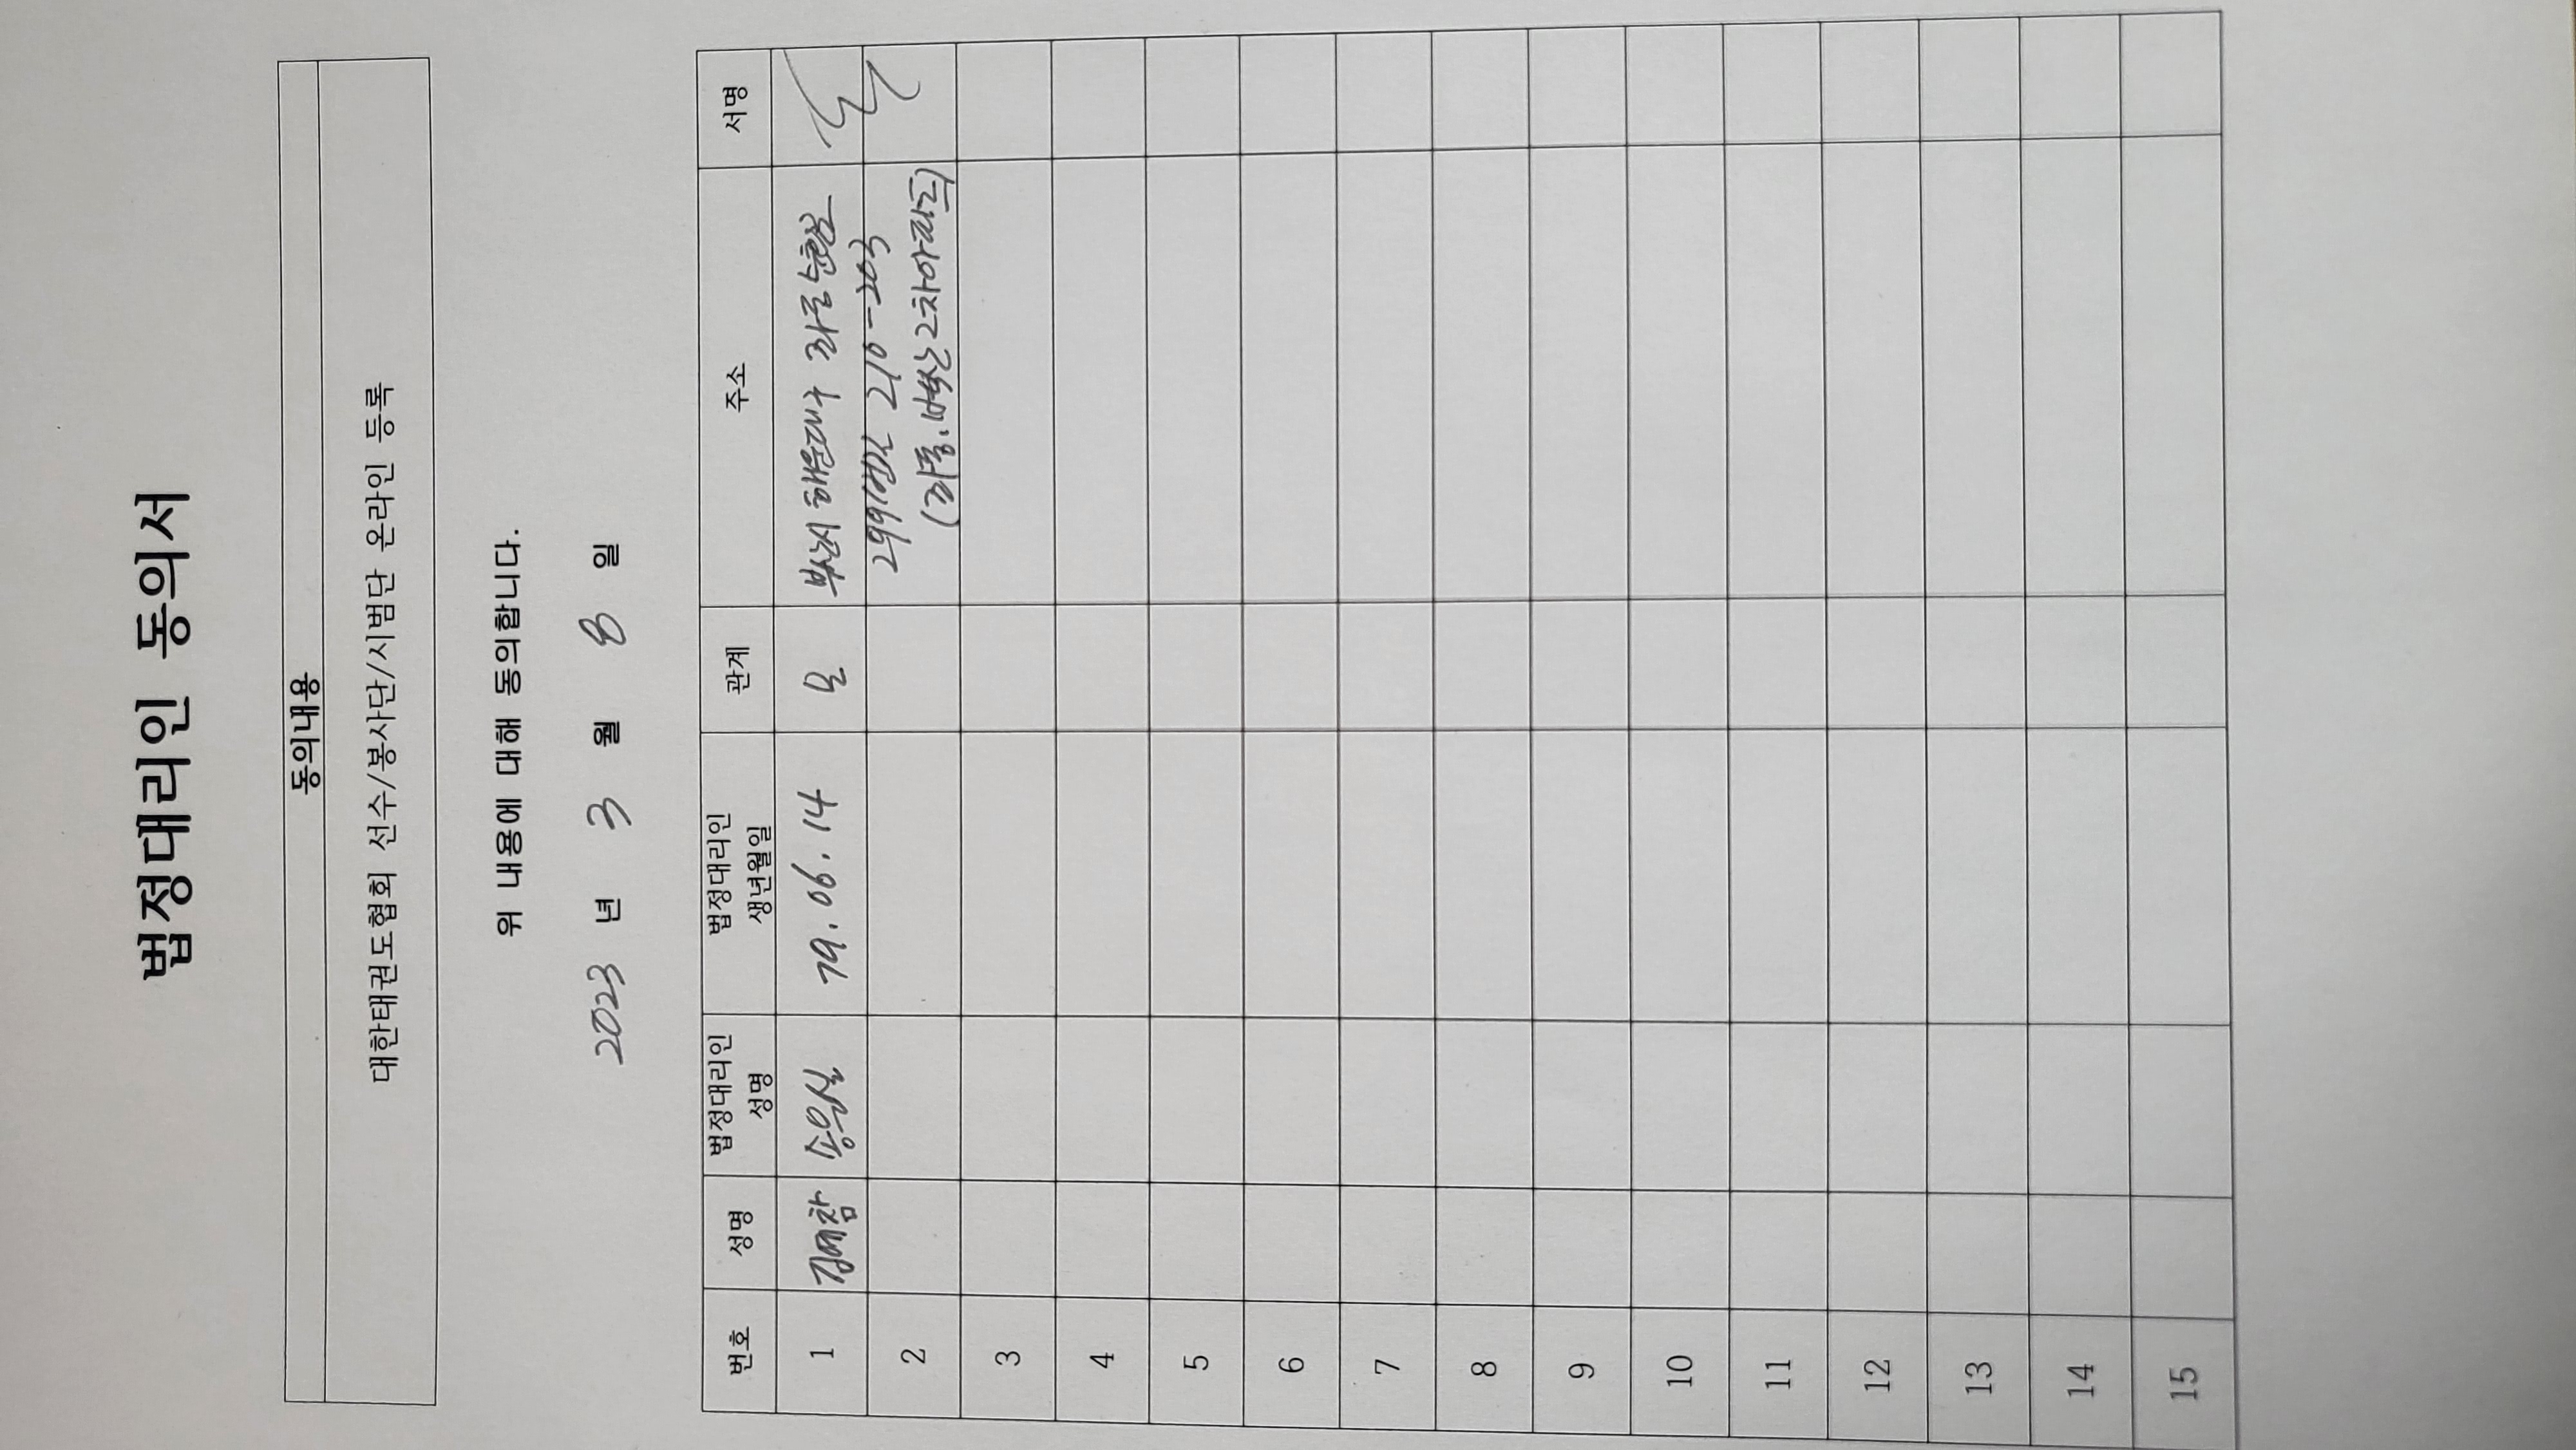 법정대리인 동의서
동의내용
대한태권도협회 선수/봉사단/시범단 온라인 등록
위 내용에 대해 동의합니다.
2023 년 3 월 8 일
번호 성명 법정대리인 성명 법정대리인 생년월일 관계 주소 서명
1 김예참 송은실 79. 06. 14 모 부산시 해운대구 좌동순환로
2 299번길 210-203
3
4
5
6
7
8
9
10
11
12
13
14
15